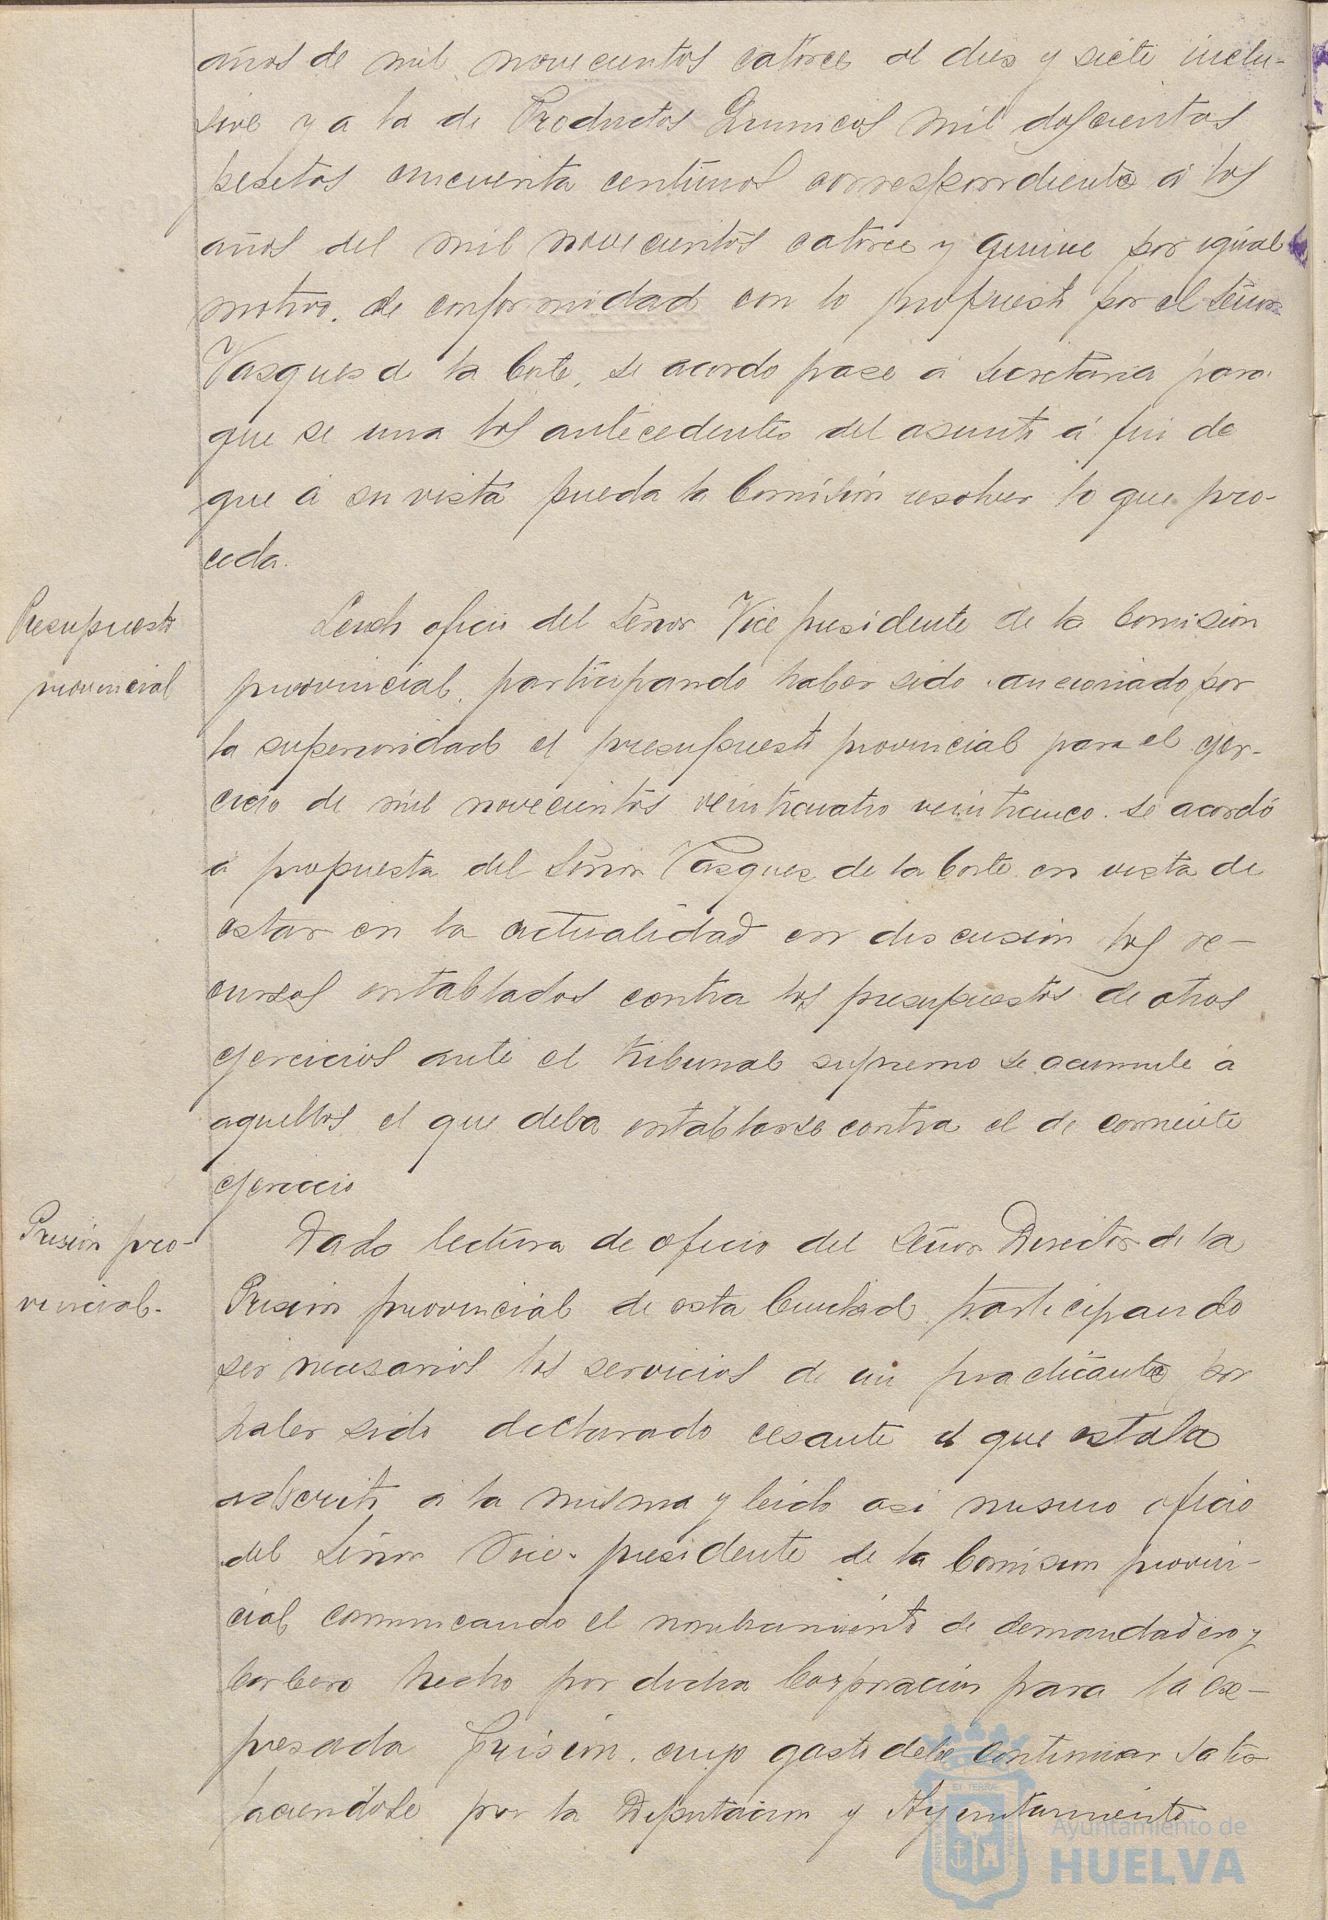 años de mil novecientos catorce al diez y siete inclu-
sive y a la de Productos Quimicos mil doscientas
pesetas cincuenta centimos correspondiente a los
años del mil novecientos catorce y quince por igual
motivo. de conformidad con lo propuesto por el Señor
Vasquez de la Corte, se acordo pase a Secretaria para
que se una los antecedentes del asunto á fin de
que á su vista pueda la Comisión resolver lo que pro-
ceda.
Presupuesto
provincial
Leido oficio del Señor Vice presidente de la Comision
provincial, participando haber sido sancionado por
la superioridad el presupuesto provincial para el ejer-
cicio de mil novecientos veinticuatro veinticinco. se acordó
a propuesta del Señor Vasquez de la Corte en vista de
estar en la actualidad en discusión los re-
cursos entablados contra los presupuestos de otros
ejercicios ante el tribunal supremo se acumule a
aquellos el que deba entablarse contra el de corriente
ejercicio
Prisión pro-
vincial.
Dado lectura de oficio del Señor Director de la
Prision provincial de esta Ciudad participando
ser necesarios los servicios de un practicante por
haber sido declarado cesante el que estaba
adscrito a la misma y leido asi mismo oficio
del Señor Vice-presidente de la Comision provin-
cial comunicando el nombramiento de demandadero y
barbero hecho por dicha Corporación para la ex-
presada Prisión. cuyo gasto debe continuar satis
faciendose por la Diputacion y Ayuntamiento
Ayuntamiento de
HUELVA